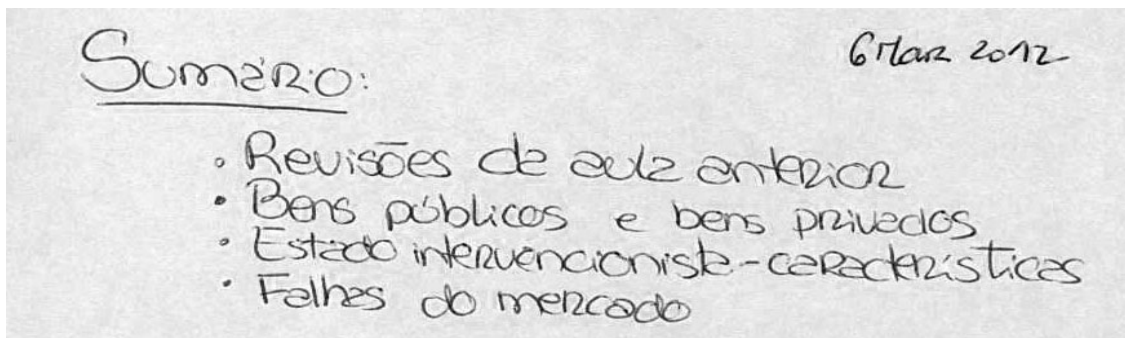 6 Mar 2012
Sumário:
• Revisões da aula anterior
• Bens públicos e bens privados
• Estado intervencionista - características
• Falhas do mercado